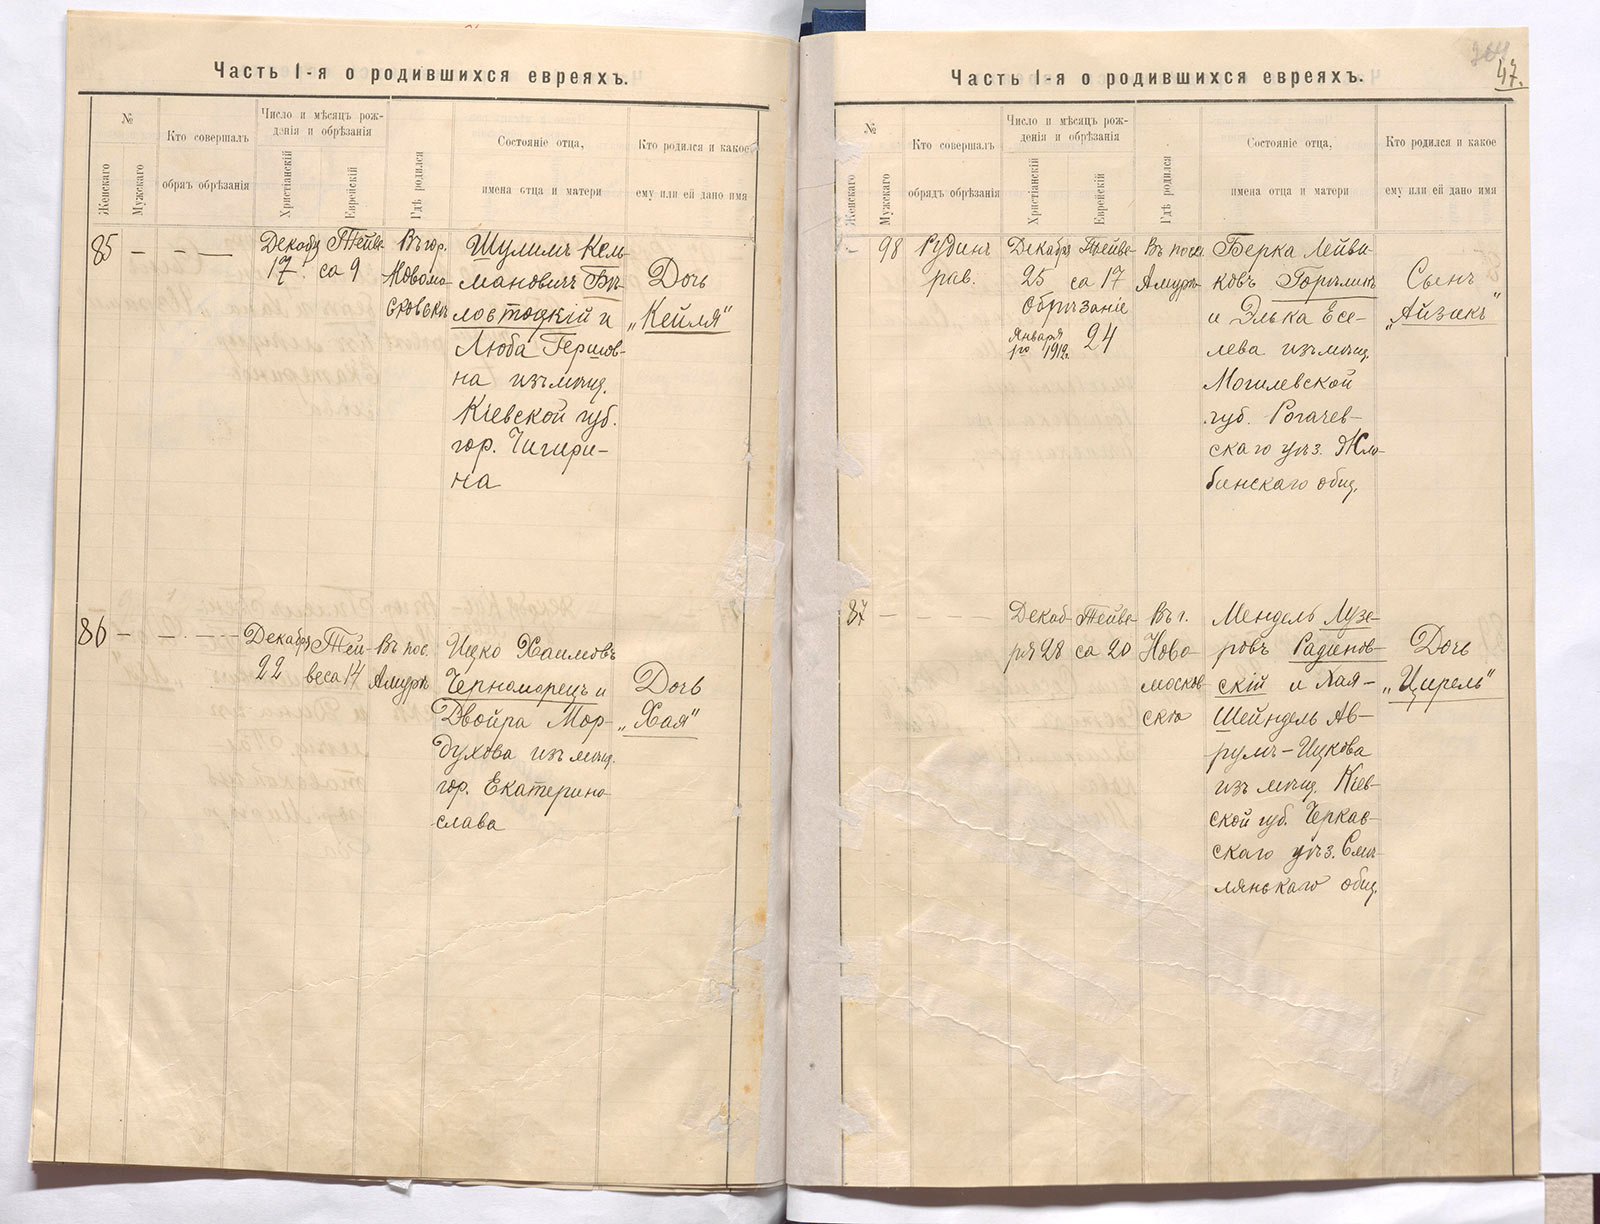 Часть I-я о родившихся евреяхъ.
№
Женскаго
Мужскаго
Кто совершалъ
обрядъ обрѣзанія
Число и мѣсяцъ рож-
денія и обрѣзанія
Христіанскій
Еврейскій
Гдѣ родился
Состояніе отца,
имена отца и матери
Кто родился и какое
ему или ей дано имя
85 — — —
Декабря
17
Тейве-
са 9
Въ гор.
Новомо-
сковскѣ
Шулимъ Кель-
мановичъ Бѣ-
лостоцкій и
Люба Гершов-
на изъ мѣщ.
Кіевской губ.
гор. Чигири-
на
Дочь
„Кейля"
86 — — —
Декабря
22
Тей-
веса 14
Въ пос.
Амурѣ
Ицко Хаимовъ
Черноморецъ и
Двойра Мор-
духова изъ мѣщ.
гор. Екатерино-
слава
Дочь
„Хая"
304
47.
Часть I-я о родившихся евреяхъ.
№
Женскаго
Мужскаго
Кто совершалъ
обрядъ обрѣзанія
Число и мѣсяцъ рож-
денія и обрѣзанія
Христіанскій
Еврейскій
Гдѣ родился
Состояніе отца,
имена отца и матери
Кто родился и какое
ему или ей дано имя
— 98
Рудинъ
рав.
Декабря
25
Тейве-
са 17
Обрѣзаніе
Января
1го 1912г.
24
Въ посел.
Амурѣ
Берка Лейви-
ковъ Горѣликъ
и Элька Есе-
лева изъ мѣщ.
Могилевской
губ. Рогачев-
скаго уѣз. Жло-
бинскаго общ.
Сынъ
„Айзикъ"
87 — — — —
Декаб-
ря 28
Тейве-
са 20
Въ г.
Ново-
москов-
скѣ
Мендель Лузе-
ровъ Радинов-
скій и Хая-
Шейндель Ав-
румъ-Ицкова
изъ мѣщ. Кіев-
ской губ. Черкас-
скаго уѣз. Смѣ-
лянскаго общ.
Дочь
„Цирель"